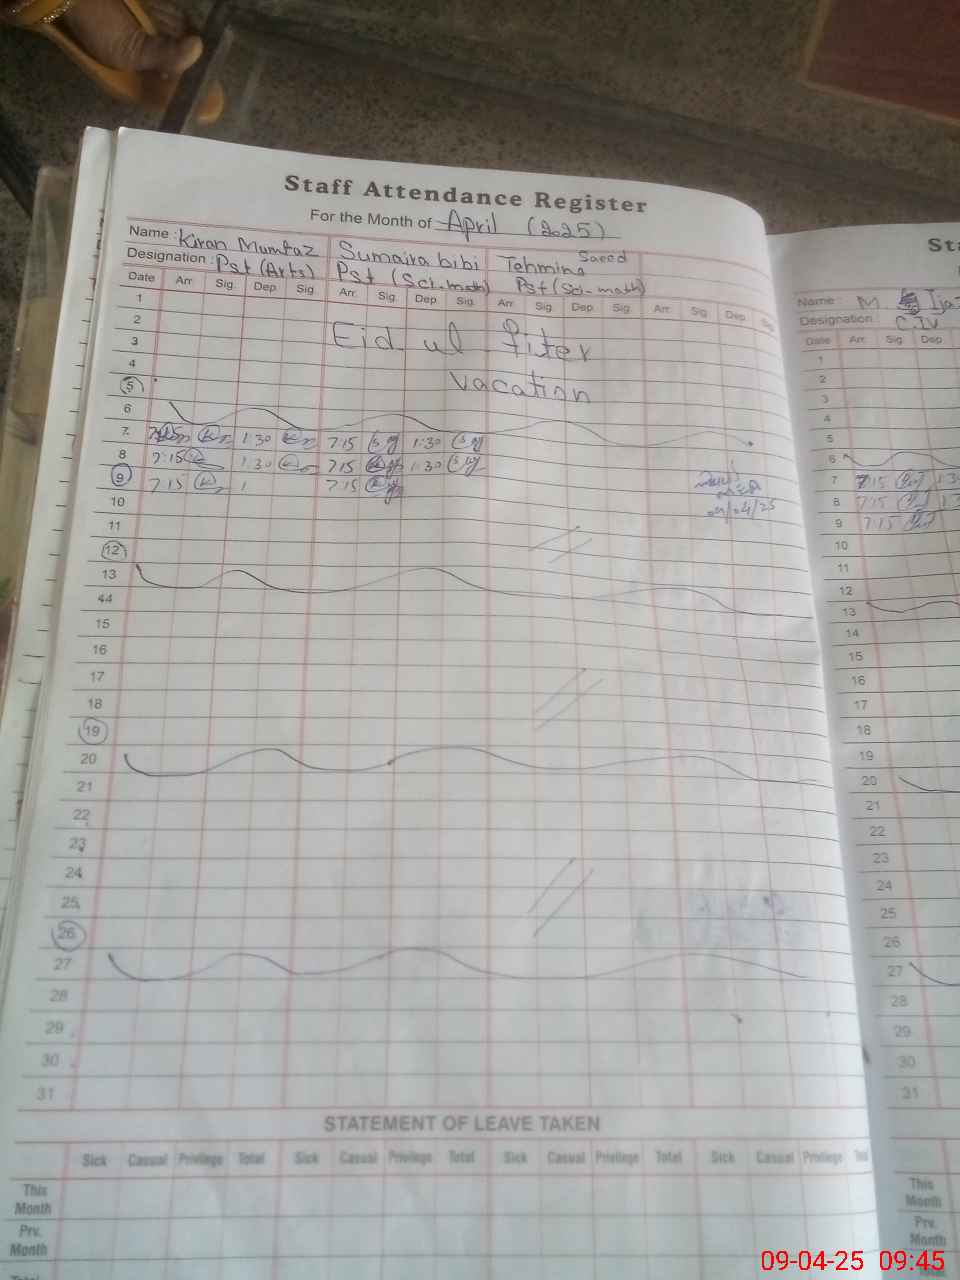 Staff Attendance Register
For the Month of April (2025)
Name : Kiran Mumtaz Sumaira bibi Tehmina Saeed
Designation : Pst (Arts) Pst (Sci-math) Pst (Sci-math)
Date Arr. Sig. Dep. Sig. Arr. Sig. Dep. Sig. Arr. Sig. Dep. Sig. Arr. Sig. Dep. Sig.
1
2
3 Eid ul fiter
4
5 vacation
6
7 7:15 1:30 7:15 1:30
8 7:15 1:30 7:15 1:30
9 7:15 1 7:15
09/04/25
10
11
12
13
14
15
16
17
18
19
20
21
22
23
24
25
26
27
28
29
30
31
STATEMENT OF LEAVE TAKEN
Sick Casual Privilege Total Sick Casual Privilege Total Sick Casual Privilege Total Sick Casual Privilege Total
This Month
Prv. Month
Total
Sta
Name : M Ijaz
Designation : C.IV
Date Arr. Sig. Dep.
1
2
3
4
5
6
7 7:15 1:3
8 7:15 1:3
9 7:15
10
11
12
13
14
15
16
17
18
19
20
21
22
23
24
25
26
27
28
29
30
31
This Month
Prv. Month
09-04-25 09:45